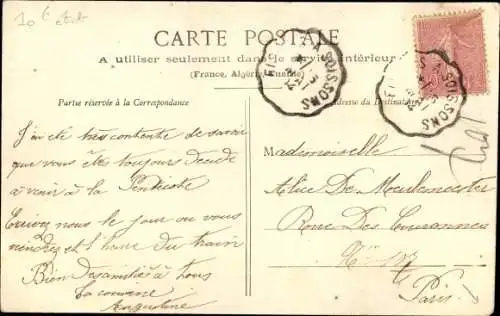 CARTE POSTALE
A utiliser seulement dans le service intérieur
(France, Algérie, Tunisie)
Partie réservée à la Correspondance
Adresse du Destinataire
SOISSONS
SOISSONS
J'ai été très contente de savoir
que vous êtes toujours
à venir à la Pentecôte
Ecrivez nous le jour ou vous
viendrez et l'heure du train
Bien Des amitiés à Tous
La cousine
Augustine
Mademoiselle
Alice De Meulemeester
Rue Des
Paris